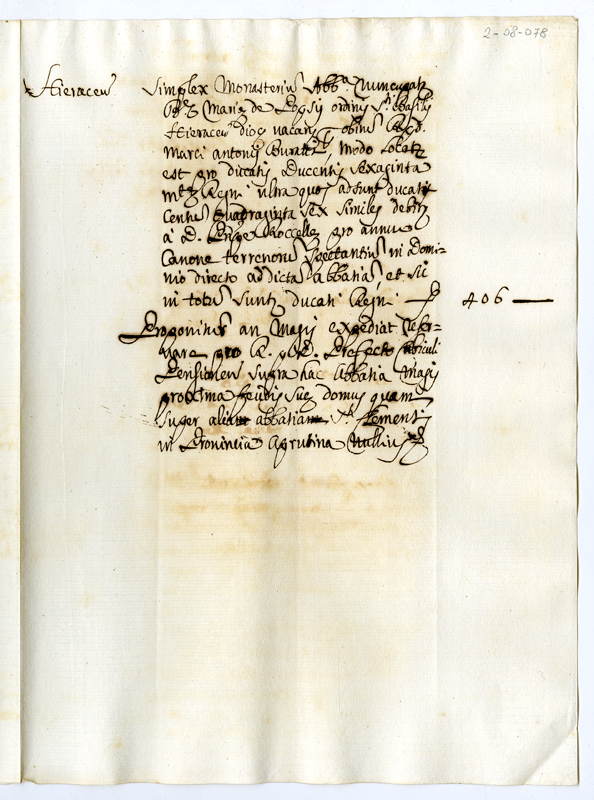 2-08-078
Hieracen̄
Simplex Monasteriū Abb.ª nuncupat
Mariæ de ordinis S.ti Basilij
Hieracen̄ dioc vacan̄ obitū
Marci Antonij modo locat
est pro ducatis Ducentis sexaginta
Regni ultra quos adsunt ducati
Centū quadraginta sex similes
à D. Roccelle pro annuo
Canone terrenorū spectantiū in Domi-
nio directo ad dictā abbatiā, et sic
in totū sunt ducati Regni — 406 —
Proponitur an Magis expediat reser-
vare pro Prefecto
Pensionem supra hac Abbatia magis
proxima feudis suæ domus quam
super aliam abbatiam S.ti Clement
in Provincia Aprutina Nullius